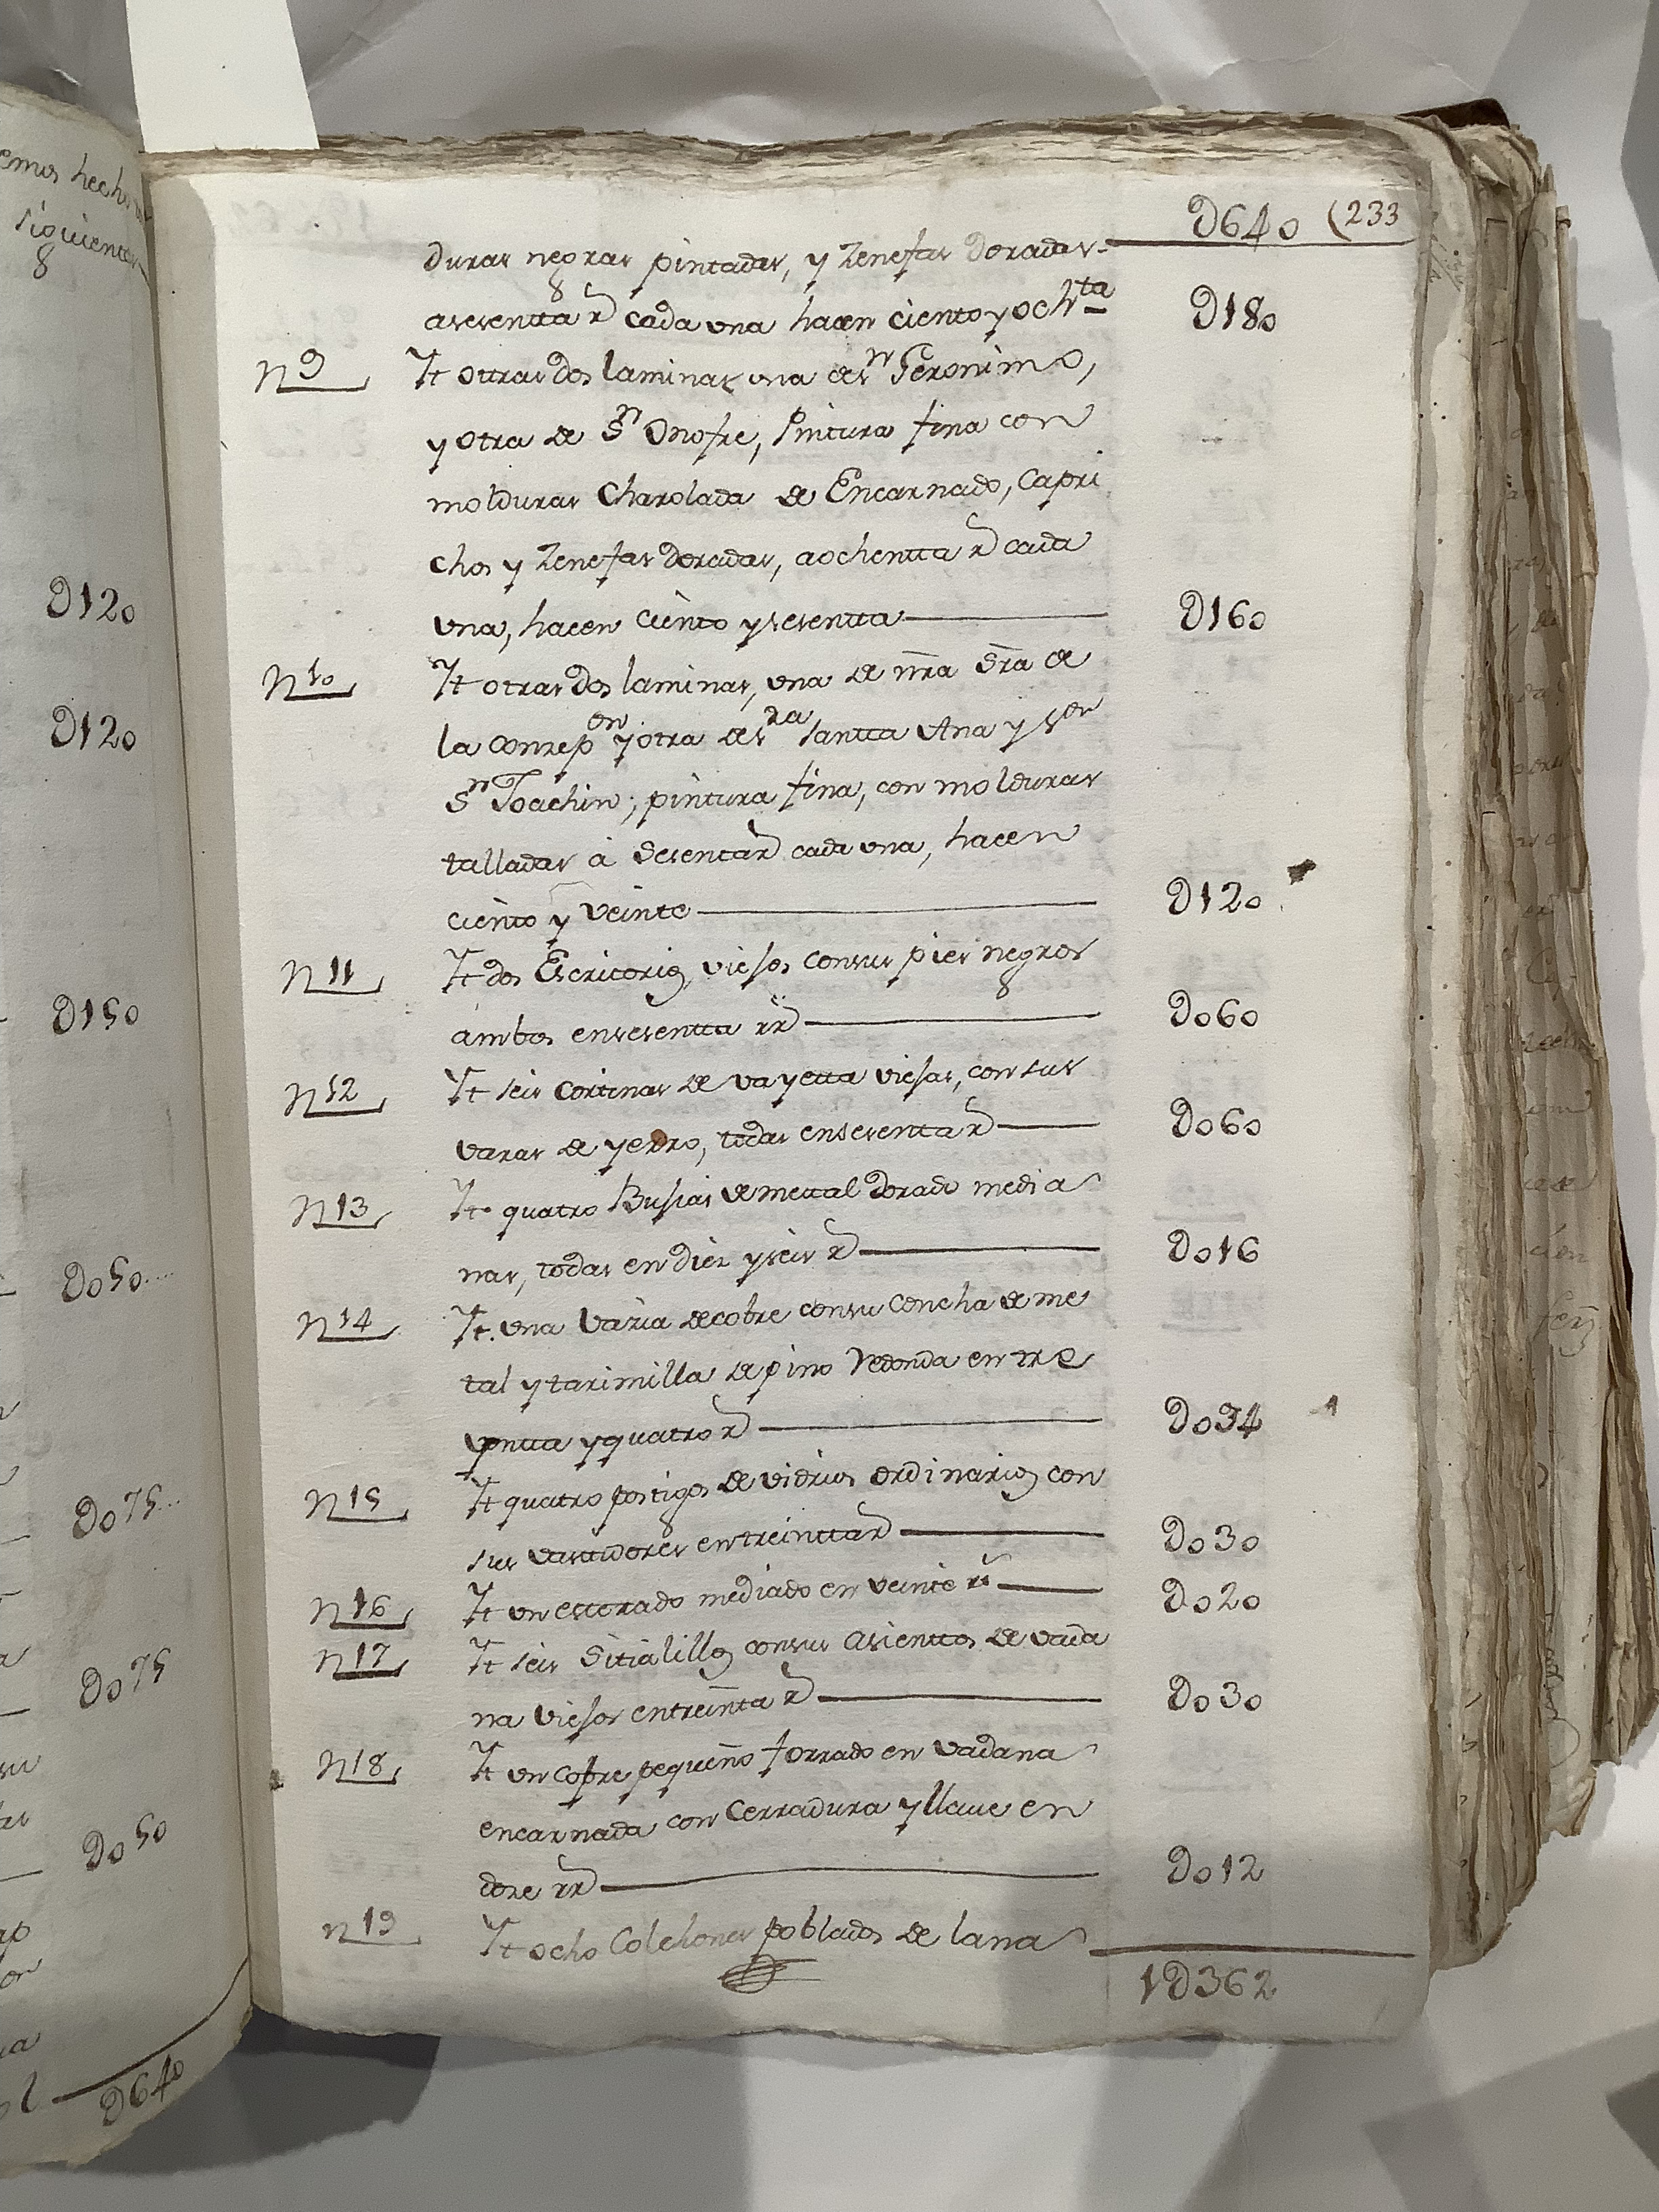 D640 (233
duras negras pintadas, y Zenefas doradas
asesentta rs cada una hacen ciento y och.ta D180
n 9 Yt ottras dos laminas una de sn Geronimo,
y otra de Sn Onofre, Pintura fina con
molduras Charolada de Encarnado, Capri
chos y Zenefas doradas, aochentta rs cada
una, hacen ciento y sesentta D160
n 10 Yt otras dos laminas, una de nra Sra de
la Conzepon y otra de Santta Ana y
Sn Joachin; pintura fina, con molduras
talladas à Sesenta rs cada una, hacen
ciento y veinte D120
n 11 Yt dos Escritorios viejos consus pies negros
ambos ensesentta rs D060
n 12 Yt seis Cortinas de vayetta viejas, con sus
varas de yerro, todas ensesenta rs D060
n 13 Yt quatro Bujias de mettal dorado media
nas, todas en diez y seis rs D016
n 14 Yt una Varia de cobre consu Concha de me
tal y tarimilla de pino Redonda en tre
yntta y quatro rs D034
n 15 Yt quatro postigos de vidrios ordinarios con
sus vasttidores en treintta rs D030
n 16 Yt un estterado mediado en veinte rs D020
n 17 Yt seis Sitialillos consus asienttos de vada
na viejos entreinta rs D030
n 18 Yt un Cofre pequeño forrado en vadana
encarnada con Cerradura y llave en
doze rs D012
n 19 Yt ocho Colchones poblados de lana
1D362
emos hecho
siguientes
D120
D120
D150
D050
D075
D075
D050
D640